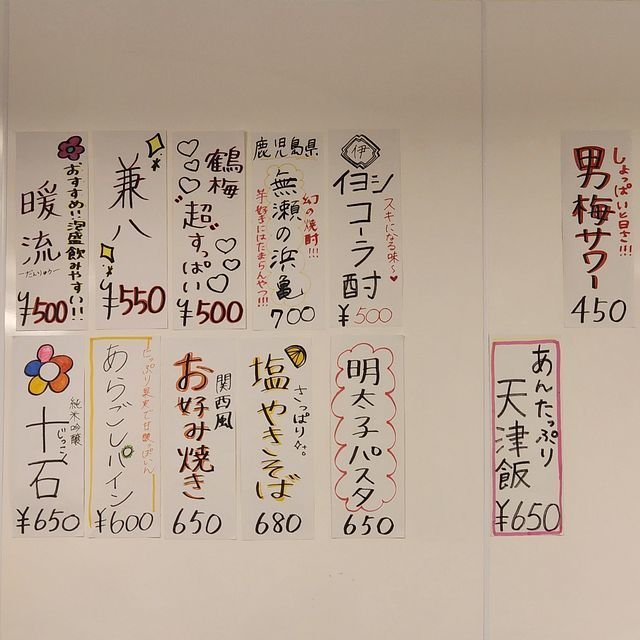 暖流
だんりゅう
おすすめ!!泡盛飲みやすい!!
¥500
兼八
¥550
鶴梅
"超"すっぱい
¥500
鹿児島県
無瀬の浜亀
幻の焼酎!!!
芋好きにはたまらんやつ!!!
700
伊
イヨシコーラ酎
スキになる味〜
¥500
男梅サワー
しょっぱいと旨さ!!!
450
十石
じっこく
純米吟醸
¥650
あらごしパイン
たっぷり果実で甘酸っぱいん
¥600
関西風
お好み焼き
650
塩やきそば
さっぱり
680
明太子パスタ
650
あんたっぷり
天津飯
¥650